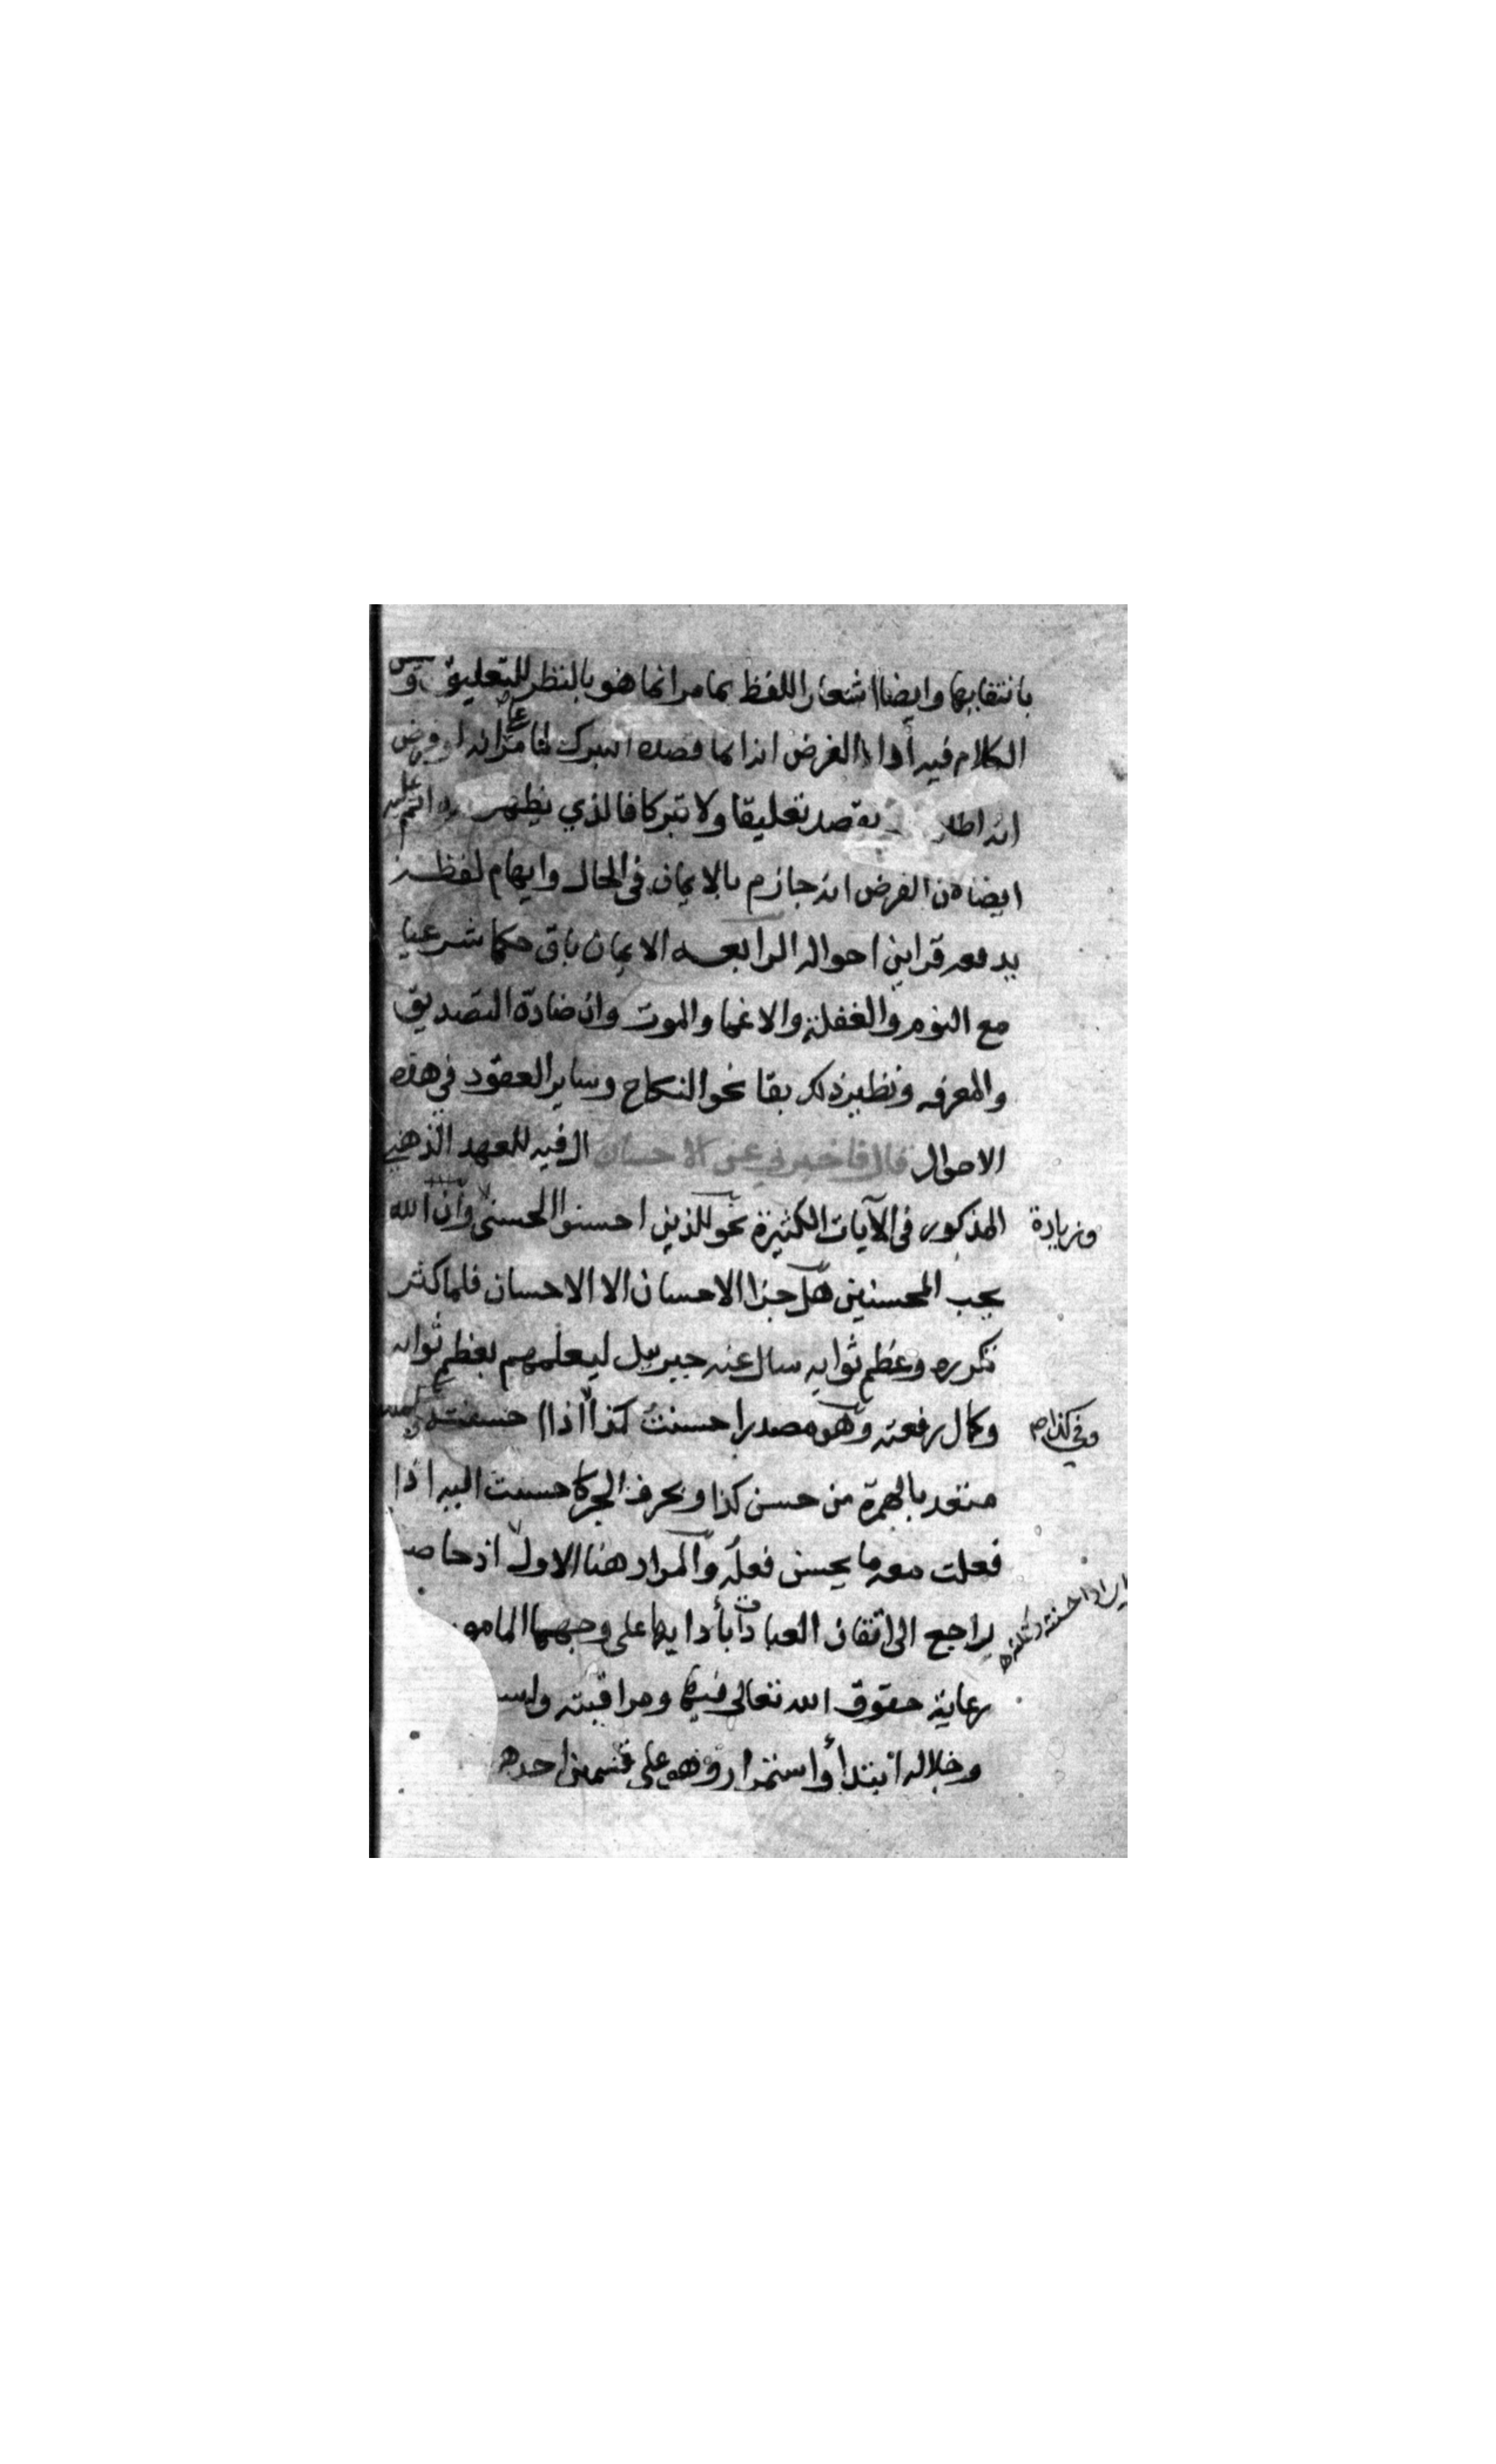 بانتفايها وايضا اشعار اللفظ بما مر انما هو بالنظر للتعليق وليس
الكلام فيه اذ الغرض انه انما قصده التبرك لما مر انه لو فرض
انه اطلق يقصد تعليقا ولا تبركا فالذي يظهر انه اثم عليه
ايضا لان الفرض انه جازم بالايمان في الحال وايهام لفظه
يدفعه قراين احواله الرابعه الايمان باق حكما شرعيا
مع النوم والغفلة والاغما والموت وان ضادة التصديق
والمعرفه ونظير ذلك بقا نحو النكاح وساير العقود في هذه
الاحوال قال فاخبرني عن الاحسان ال فيه للعهد الذهني
المذكور في الآيات الكثيرة نحو للذين احسنوا الحسنى وان الله
وزيادة
يحب المحسنين هل جزا الاحسان الا الاحسان فلما كثر
تكرره وعظم ثوابه سال عنه جبريل ليعلمهم بعظم ثوابه
وكمال رفعته وهو مصدر احسنت كذا اذا احسنته
وفي كذا صح
متعد بالهمزة من حسن كذا وبحرف الجر كاحسنت اليه اذا
فعلت معه ما يحسن فعله والمراد هنا الاول اذ حاصله
يراجع الى اتقان العبادات بأدايها على وجهها المامور
رعاية حقوق الله تعالى فيها ومراقبته
وجلاله ابتدأ واستمرارا وهو على قسمين احدهما